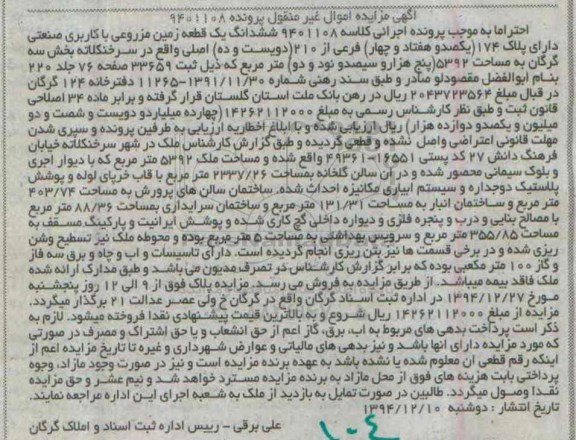 آگهی مزایده اموال غیر منقول پرونده ۹۴۰۱۱۰۸
احتراما به موجب پرونده اجرائی کلاسه ۹۴۰۱۱۰۸ ششدانگ یک قطعه زمین مزروعی با کاربری صنعتی
دارای پلاک ۱۷۴(یکصدو هفتاد و چهار) فرعی از ۲۱۰(دویست و ده) اصلی واقع در سرخنکلاته بخش سه
گرگان به مساحت ۵۳۹۲(پنج هزارو سیصدو نود و دو) متر مربع که ذیل ثبت ۳۳۶۵۹ صفحه ۷۶ جلد ۲۲۰
بنام ابوالفضل مقصودلو صادر و طبق سند رهنی شماره ۱۱۲۶۵-۱۳۹۱/۱۱/۳۰ دفترخانه ۱۲۴ گرگان
در قبال مبلغ ۲۰۴۳۷۲۳۵۶۴ ریال در رهن بانک ملت استان گلستان قرار گرفته و برابر ماده ۳۴ اصلاحی
قانون ثبت و طبق نظر کارشناس رسمی به مبلغ ۱۴۲۶۲۱۱۲۰۰۰(چهارده میلیاردو دویست و شصت و دو
میلیون و یکصدو دوازده هزار) ریال ارزیابی شده و با ابلاغ اخطاریه ارزیابی به طرفین پرونده و سپری شدن
مهلت قانونی اعتراضی واصل نشده و قطعی گردیده و طبق گزارش کارشناس ملک در شهر سرخنکلاته خیابان
فرهنگ دانش ۲۷ کد پستی ۱۶۵۵۱-۴۹۳۶۱ واقع شده و مساحت ملک ۵۳۹۲ متر مربع که با دیوار اجری
و بلوک سیمانی محصور شده و در آن سالن گلخانه بمساحت ۲۳۳۷/۲۶ متر مربع با قاب خرپای لوله و پوشش
پلاستیک دوجداره و سیستم ابیاری مکانیزه احداث شده. ساختمان سالن های پرورش به مساحت ۴۰۳/۷۴
متر مربع و ساختمان انبار به مساحت ۱۳۱/۳۱ متر مربع و ساختمان سرایداری بمساحت ۸۸/۳۶ متر مربع
با مصالح بنایی و درب و پنجره فلزی و دیواره داخلی گچ کاری شده و پوشش ایرانیت و پارکینگ مسقف به
مساحت ۳۵۵/۸۵ متر مربع و سرویس بهداشتی به مساحت ۵ متر مربع بوده و محوطه ملک نیز تسطیح وشن
ریزی شده و در برخی قسمت ها نیز بتن ریزی انجام گردیده است. دارای تاسیسات و اب و چاه و برق سه فاز
و گاز ۱۰۰ متر مکعبی بوده که برابر گزارش کارشناس در تصرف مدیون می باشد و طبق مدارک ارائه شده
ملک فاقد بیمه میباشد. از طریق مزایده به فروش می رسد. مزایده پلاک فوق از ۹ الی ۱۲ روز پنجشنبه
مورخ ۱۳۹۴/۱۲/۲۷ در اداره ثبت اسناد گرگان واقع در گرگان خ ولی عصر عدالت ۲۱ برگذار میگردد.
مزایده از مبلغ ۱۴۲۶۲۱۱۲۰۰۰ ریال شروع و به بالاترین قیمت پیشنهادی نقدا فروخته میشود. لازم به
ذکر است پرداخت بدهی های مربوط به اب، برق، گاز اعم از حق انشعاب و یا حق اشتراک و مصرف در صورتی
که مورد مزایده دارای انها باشد و نیز بدهی های مالیاتی و عوارض شهرداری و غیره تا تاریخ مزایده اعم از
اینکه رقم قطعی ان معلوم شده یا نشده باشد به عهده برنده مزایده است و نیز در صورت وجود مازاد، وجوه
پرداختی بابت هزینه های فوق از محل مازاد به برنده مزایده مسترد خواهد شد و نیم عشر و حق مزایده
نقدا وصول میگردد. طالبین در صورت تمایل به بازدید از ملک به شعبه اجرای این اداره مراجعه نمایند.
تاریخ انتشار : دوشنبه ۱۳۹۴/۱۲/۱۰
علی برقی - رییس اداره ثبت اسناد و املاک گرگان
۱۰۴